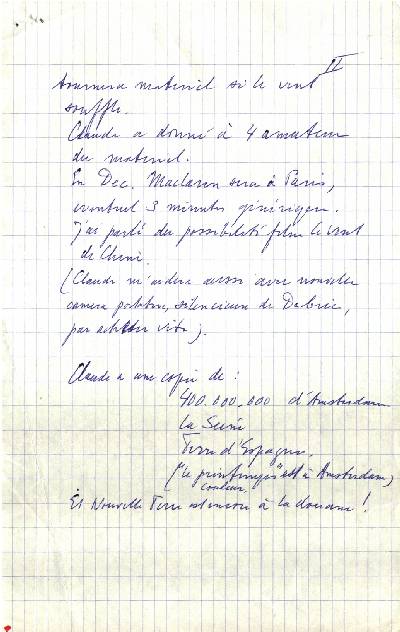 II
tournera materiel si le vent
souffle.
Claude a donné à 4 amateurs
du materiel.
En Dec. Maclaren sera à Paris,
eventuel 3 minutes générique.
J'ai parlé des possibilité film le vent
de Chine.
(Claude m'aidera aussi avec nouvelle
camera portative, silencieuse de Debrie,
pas acheter vite).
Claude a une copie de :
400.000.000 d'Amsterdam
La Seine
Terre d'Espagne.
("Le printemps" est à Amsterdam)
couleur.
Et Nouvelle Terre est encore à la douane !